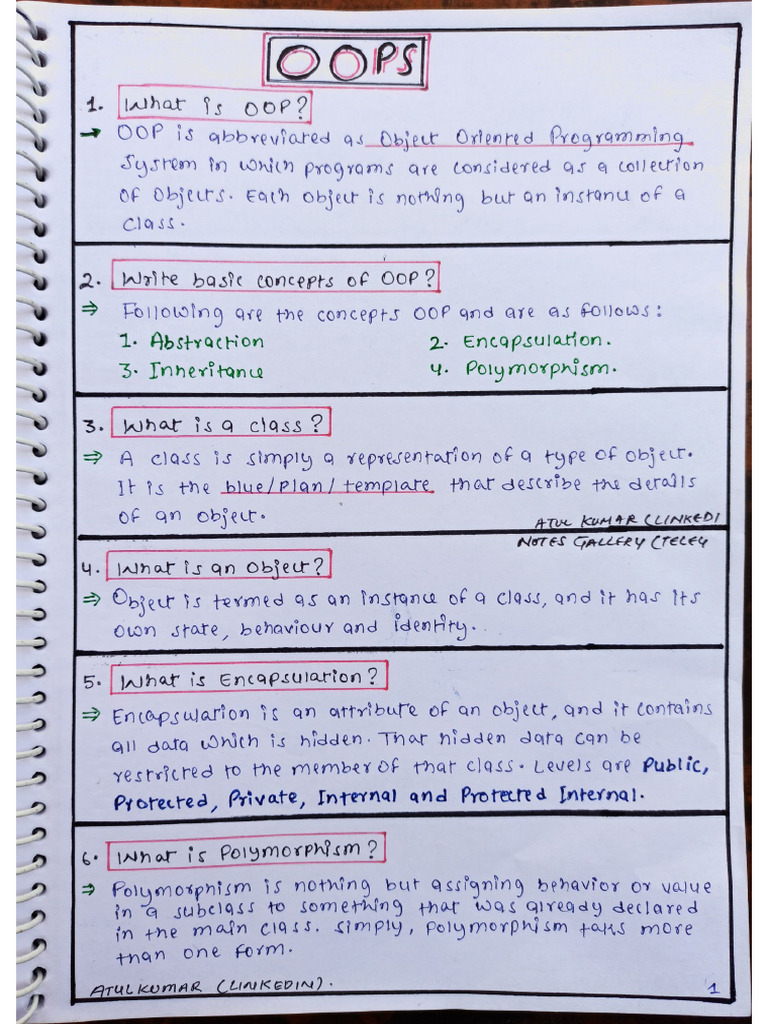 OOPS
1. What is OOP?
→ OOP is abbreviated as Object Oriented Programming
System in which programs are considered as a collection
of Objects. Each object is nothing but an instance of a
class.
2. Write basic concepts of OOP?
⇒ Following are the concepts OOP and are as follows:
1. Abstraction 2. Encapsulation.
3. Inheritance 4. Polymorphism.
3. What is a class?
⇒ A class is simply a representation of a type of object.
It is the blue/plan/template that describe the details
of an object.
ATUL KUMAR (LINKEDI
NOTES GALLERY (TELEG
4. What is an Object?
⇒ Object is termed as an instance of a class, and it has its
own state, behaviour and identity.
5. What is Encapsulation?
⇒ Encapsulation is an attribute of an object, and it contains
all data which is hidden. That hidden data can be
restricted to the member of that class. Levels are Public,
Protected, Private, Internal and Protected Internal.
6. What is Polymorphism?
⇒ Polymorphism is nothing but assigning behavior or value
in a subclass to something that was already declared
in the main class. Simply, polymorphism takes more
than one form.
ATUL KUMAR (LINKEDIN). 1